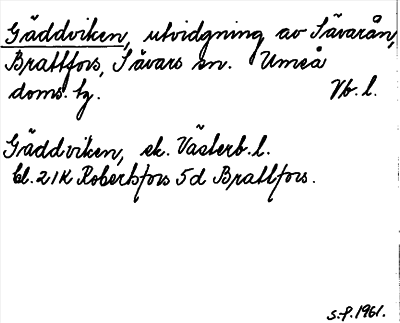 Gäddviken, utvidgning av Sävarån,
Brattfors, Sävars sn. Umeå
doms. tg. Vb. l.
Gäddviken, ek. Västerb. l.
bl. 21K Robertsfors 5d Brattfors.
s.f. 1961.